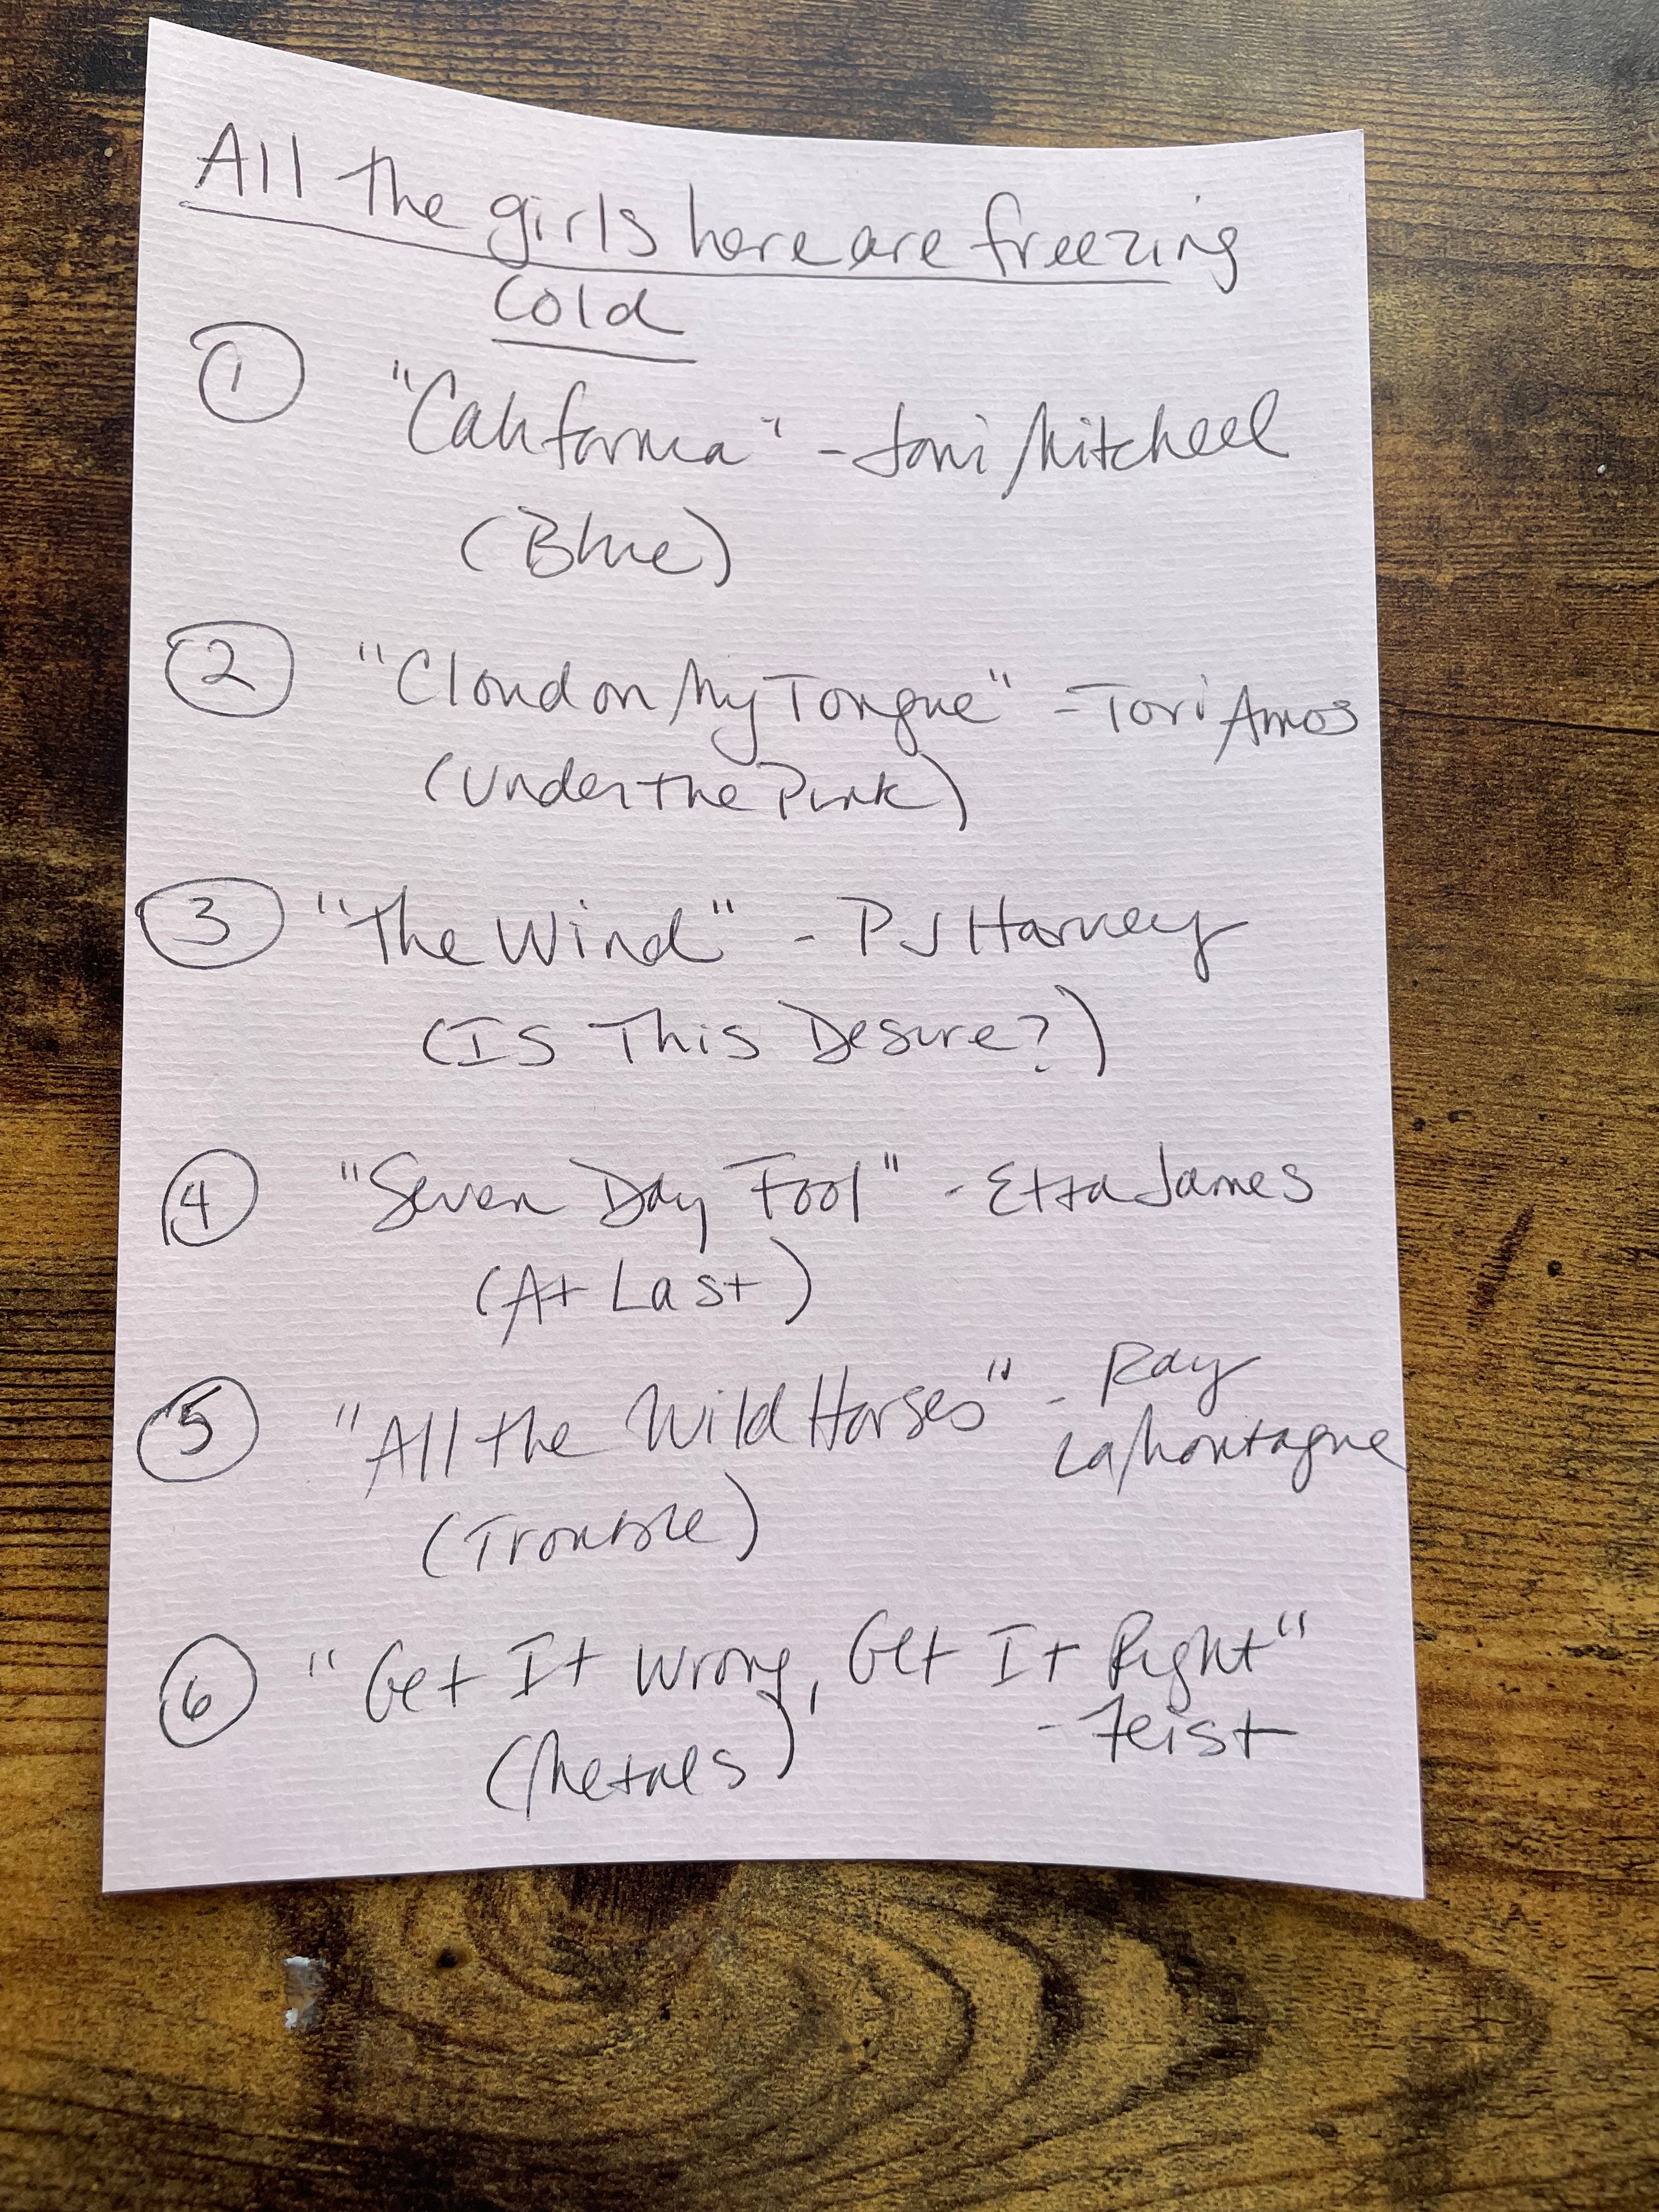 All the girls here are freezing
cold
1 "California" - Joni Mitchell
(Blue)
2 "Cloud on My Tongue" - Tori Amos
(Under the Pink)
3 "The Wind" - PJ Harvey
(Is This Desire?)
4 "Seven Day Fool" - Etta James
(At Last)
5 "All the Wild Horses" - Ray
LaMontagne
(Trouble)
6 "Get It Wrong, Get It Right"
- Feist
(Metals)